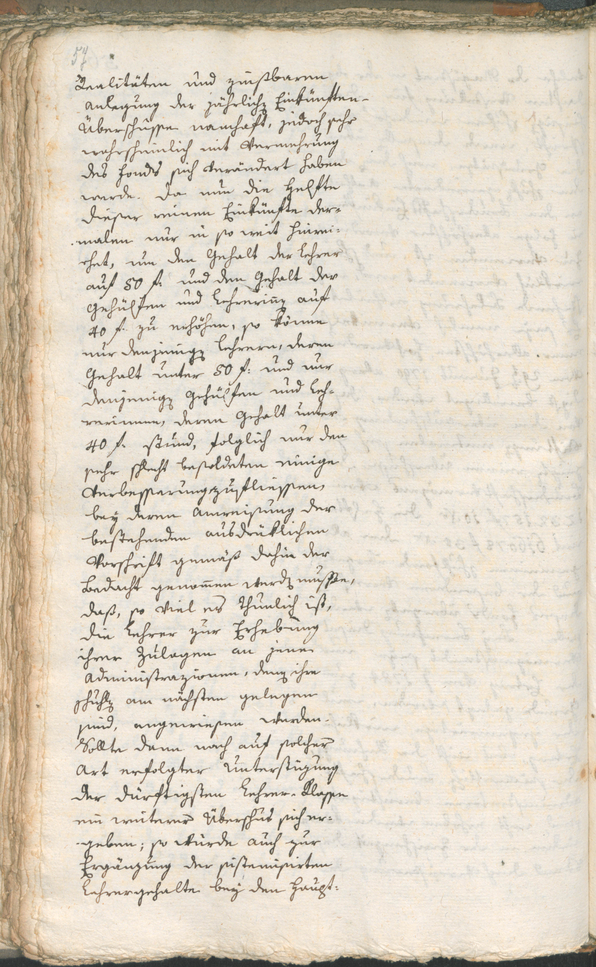 57
Realitäten und zinßbaren
Anlegung der jährlichz Einkünften-
Überschüsse namhaft, jedoch sehr
wahrscheinlich mit Vermehrung
des Fonds sich verändert haben
werde. Da nun die Helfte
dieser reinen Einkünfte der-
malen nur in so weit hinrei-
chet, um den Gehalt der Lehrer
auf 50 f. und den Gehalt der
Gehülfen und Lehrerinz auf
40 f. zu erhöhen, so könne
nur denjenigz Lehrern, deren
Gehalt unter 50 f: und nur
denjenigz Gehülfen und Leh-
rerinnen, deren Gehalt unter
40 f. stünd, folglich nur den
sehr schlecht besoldeten einige
Verbesserung zufliessen,
bey deren Anweisung der
bestehenden ausdrüklichen
Vorschrift gemäß dahin der
Bedacht genommen werdz müsste,
daß, so viel es thunlich ist,
die Lehrer zur Erhebung
ihrer Zulagen an jene
Administrazionen, denz ihre
Schulz am nächsten gelegen
sind, angewiesen werden.
Sollte dann noch auf solcher
Art erfolgter Unterstüzung
der dürftigsten Lehrer-Klasse
ein weiterer Überschus sich er-
geben; so würde auch zur
Ergänzung der sistemisirten
Lehrergehalte bey den Haupt-